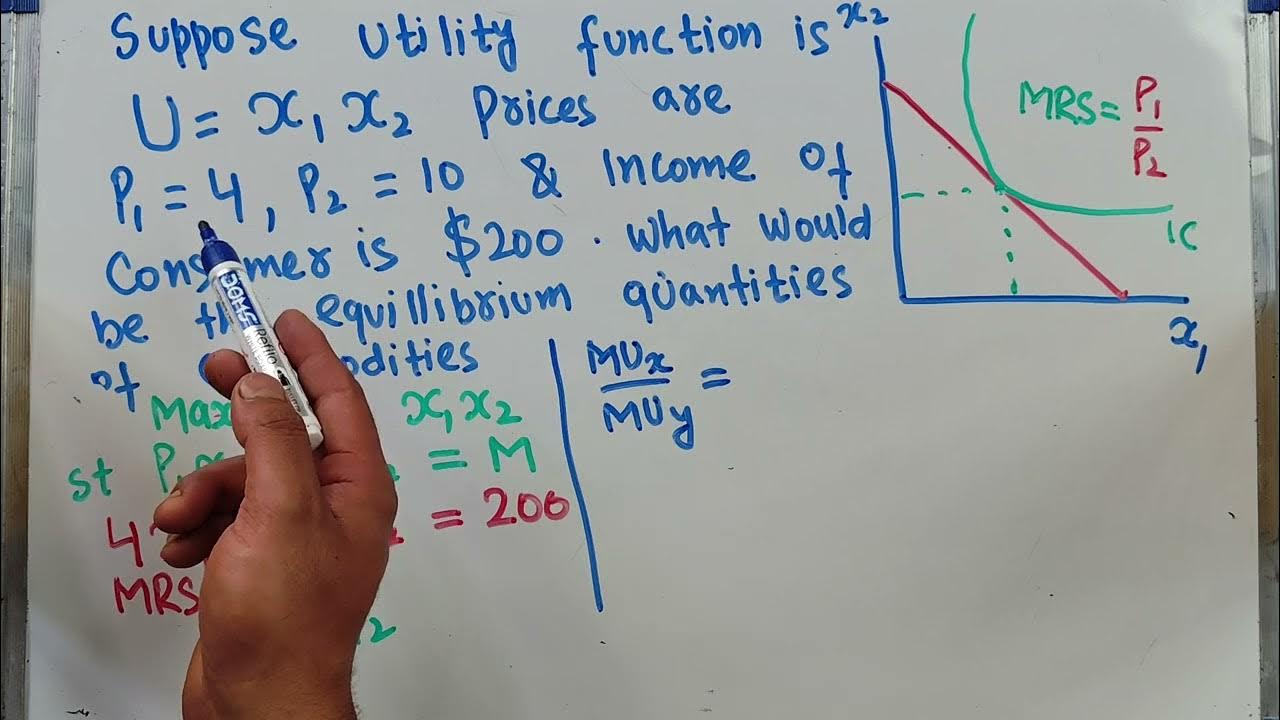 Suppose utility function is
U = x₁ x₂ Prices are
P₁ = 4, P₂ = 10 & Income of
Consumer is $200. What would
be equillibrium quantities
of
Max x₁x₂
st = M
= 200
MRS
MUx
=
MUy
x₂
MRS = P₁
P₂
IC
x₁
DOMS
Refilo